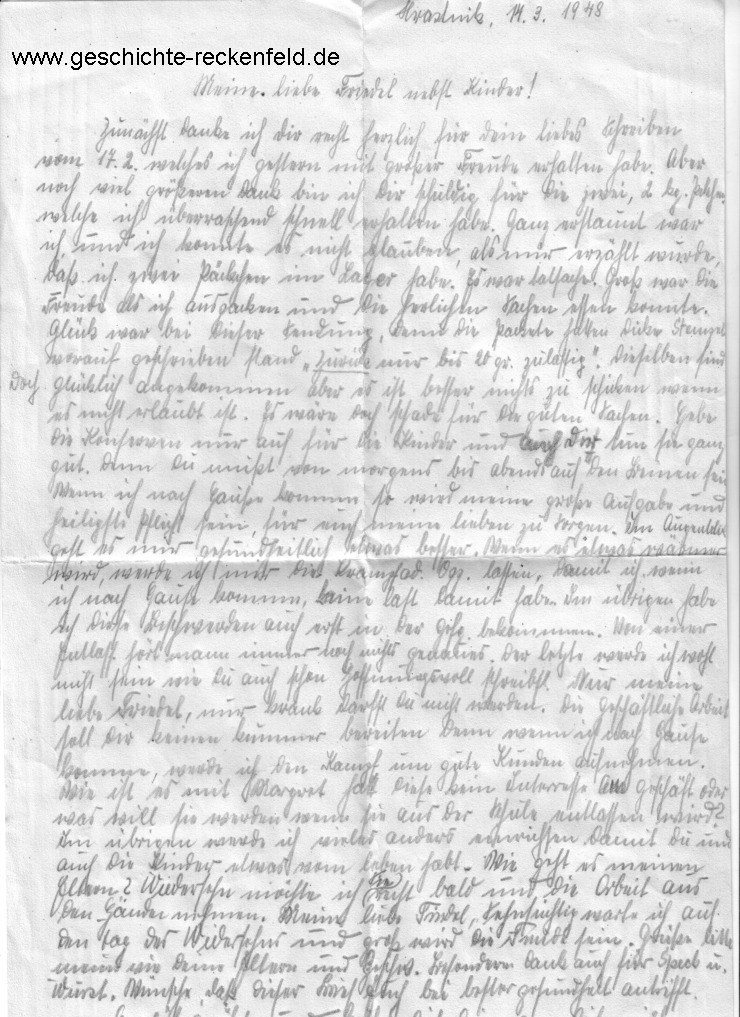 Krasnik, 14.3. 1948
www.geschichte-reckenfeld.de
Meine liebe Friedel nebst Kinder!
Zunächst danke ich dir recht herzlich für dein liebes Schreiben
vom 17.2. welches ich gestern mit großer Freude erhalten habe. Aber
noch viel größeren dank bin ich dir schuldig für die zwei, 2 kg.
welche ich überraschend schnell erhalten habe. Ganz erstaunt war
ich, und ich konnte es nicht glauben, als mir erzählt wurde,
daß ich zwei Päckchen im Lager habe. Es war tatsache. Groß war die
Freude als ich auspacken und die herlichen Sachen essen konnte.
Glück war bei dieser Sendung, denn die Packete hatten dicke Stempel
worauf geschrieben stand „Zurück nur bis 20 gr. zulässig". Dieselben sind
Doch glücklich angekommen aber es ist besser nichts zu schicken wenn
es nicht erlaubt ist. Es wäre doch schade für die guten Sachen. Gebe
die Konserven nur auch für die Kinder und auch Dir tun sie ganz
gut. Denn du mußt von morgens bis abends auf den Beinen sein
Wenn ich nach Hause komme, so wird meine große Aufgabe und
heiligste Pflicht sein für euch meine lieben zu sorgen. Im Augenblick
geht es mir gesundheitlich etwas besser. Wenn es etwas wärmer
wird, werde ich mir die lassen, damit ich wenn
ich nach Hause komme, keine last damit habe. Im übrigen habe
ich diese Beschwerden auch erst in der bekommen. Von einer
Entlass. hört mann immer noch nichts genaues. Der letzte werde ich wohl
nicht sein wie du auch schon hoffnungsvoll schreibst. Nur meine
liebe Friedel, nur krank darfst du nicht werden. Die geschäftliche Arbeit
soll dir keinen kummer bereiten denn wenn ich nach Hause
komme, werde ich den Kampf um gute Kunden aufnehmen.
Wie ist es mit Margret hat diese kein Interresse am geschäft oder
was will sie werden wenn sie aus der Schule entlassen wird?
Im übrigen werde ich vieles anders einrichten damit du und
auch die Kinder etwas vom leben habt. Wie geht es meinen
Eltern? Wiedersehn möchte ich Sie recht bald und die Arbeit aus
den Händen nehmen. Meine liebe Friedel, Sehnsüchtig warte ich auf
den tag des Widersehns und groß wird die Freude sein. Grüße bitte
meine wie deine Eltern und Geschw. Besonderen dank auch für Speck u.
Wurst. Wünsche, daß dieser Brief Euch bei bester gesundheit antrifft.